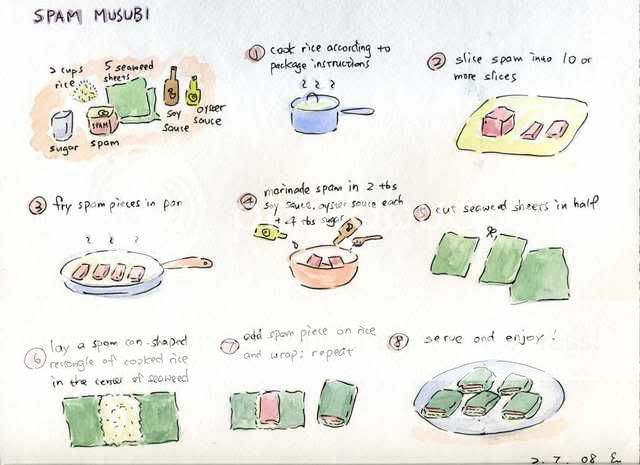 SPAM MUSUBI
2 cups
rice
5 seaweed
sheets
sugar
SPAM
spam
soy
sauce
oyster
sauce
1 cook rice according to
package instructions
2 slice spam into 10 or
more slices
3 fry spam pieces in pan
4 marinade spam in 2 tbs
soy sauce, oyster sauce each
+ 4 tbs sugar
5 cut seaweed sheets in half
6 lay a spam can-shaped
rectangle of cooked rice
in the center of seaweed
7 add spam piece on rice
and wrap; repeat
8 serve and enjoy!
2.7.08